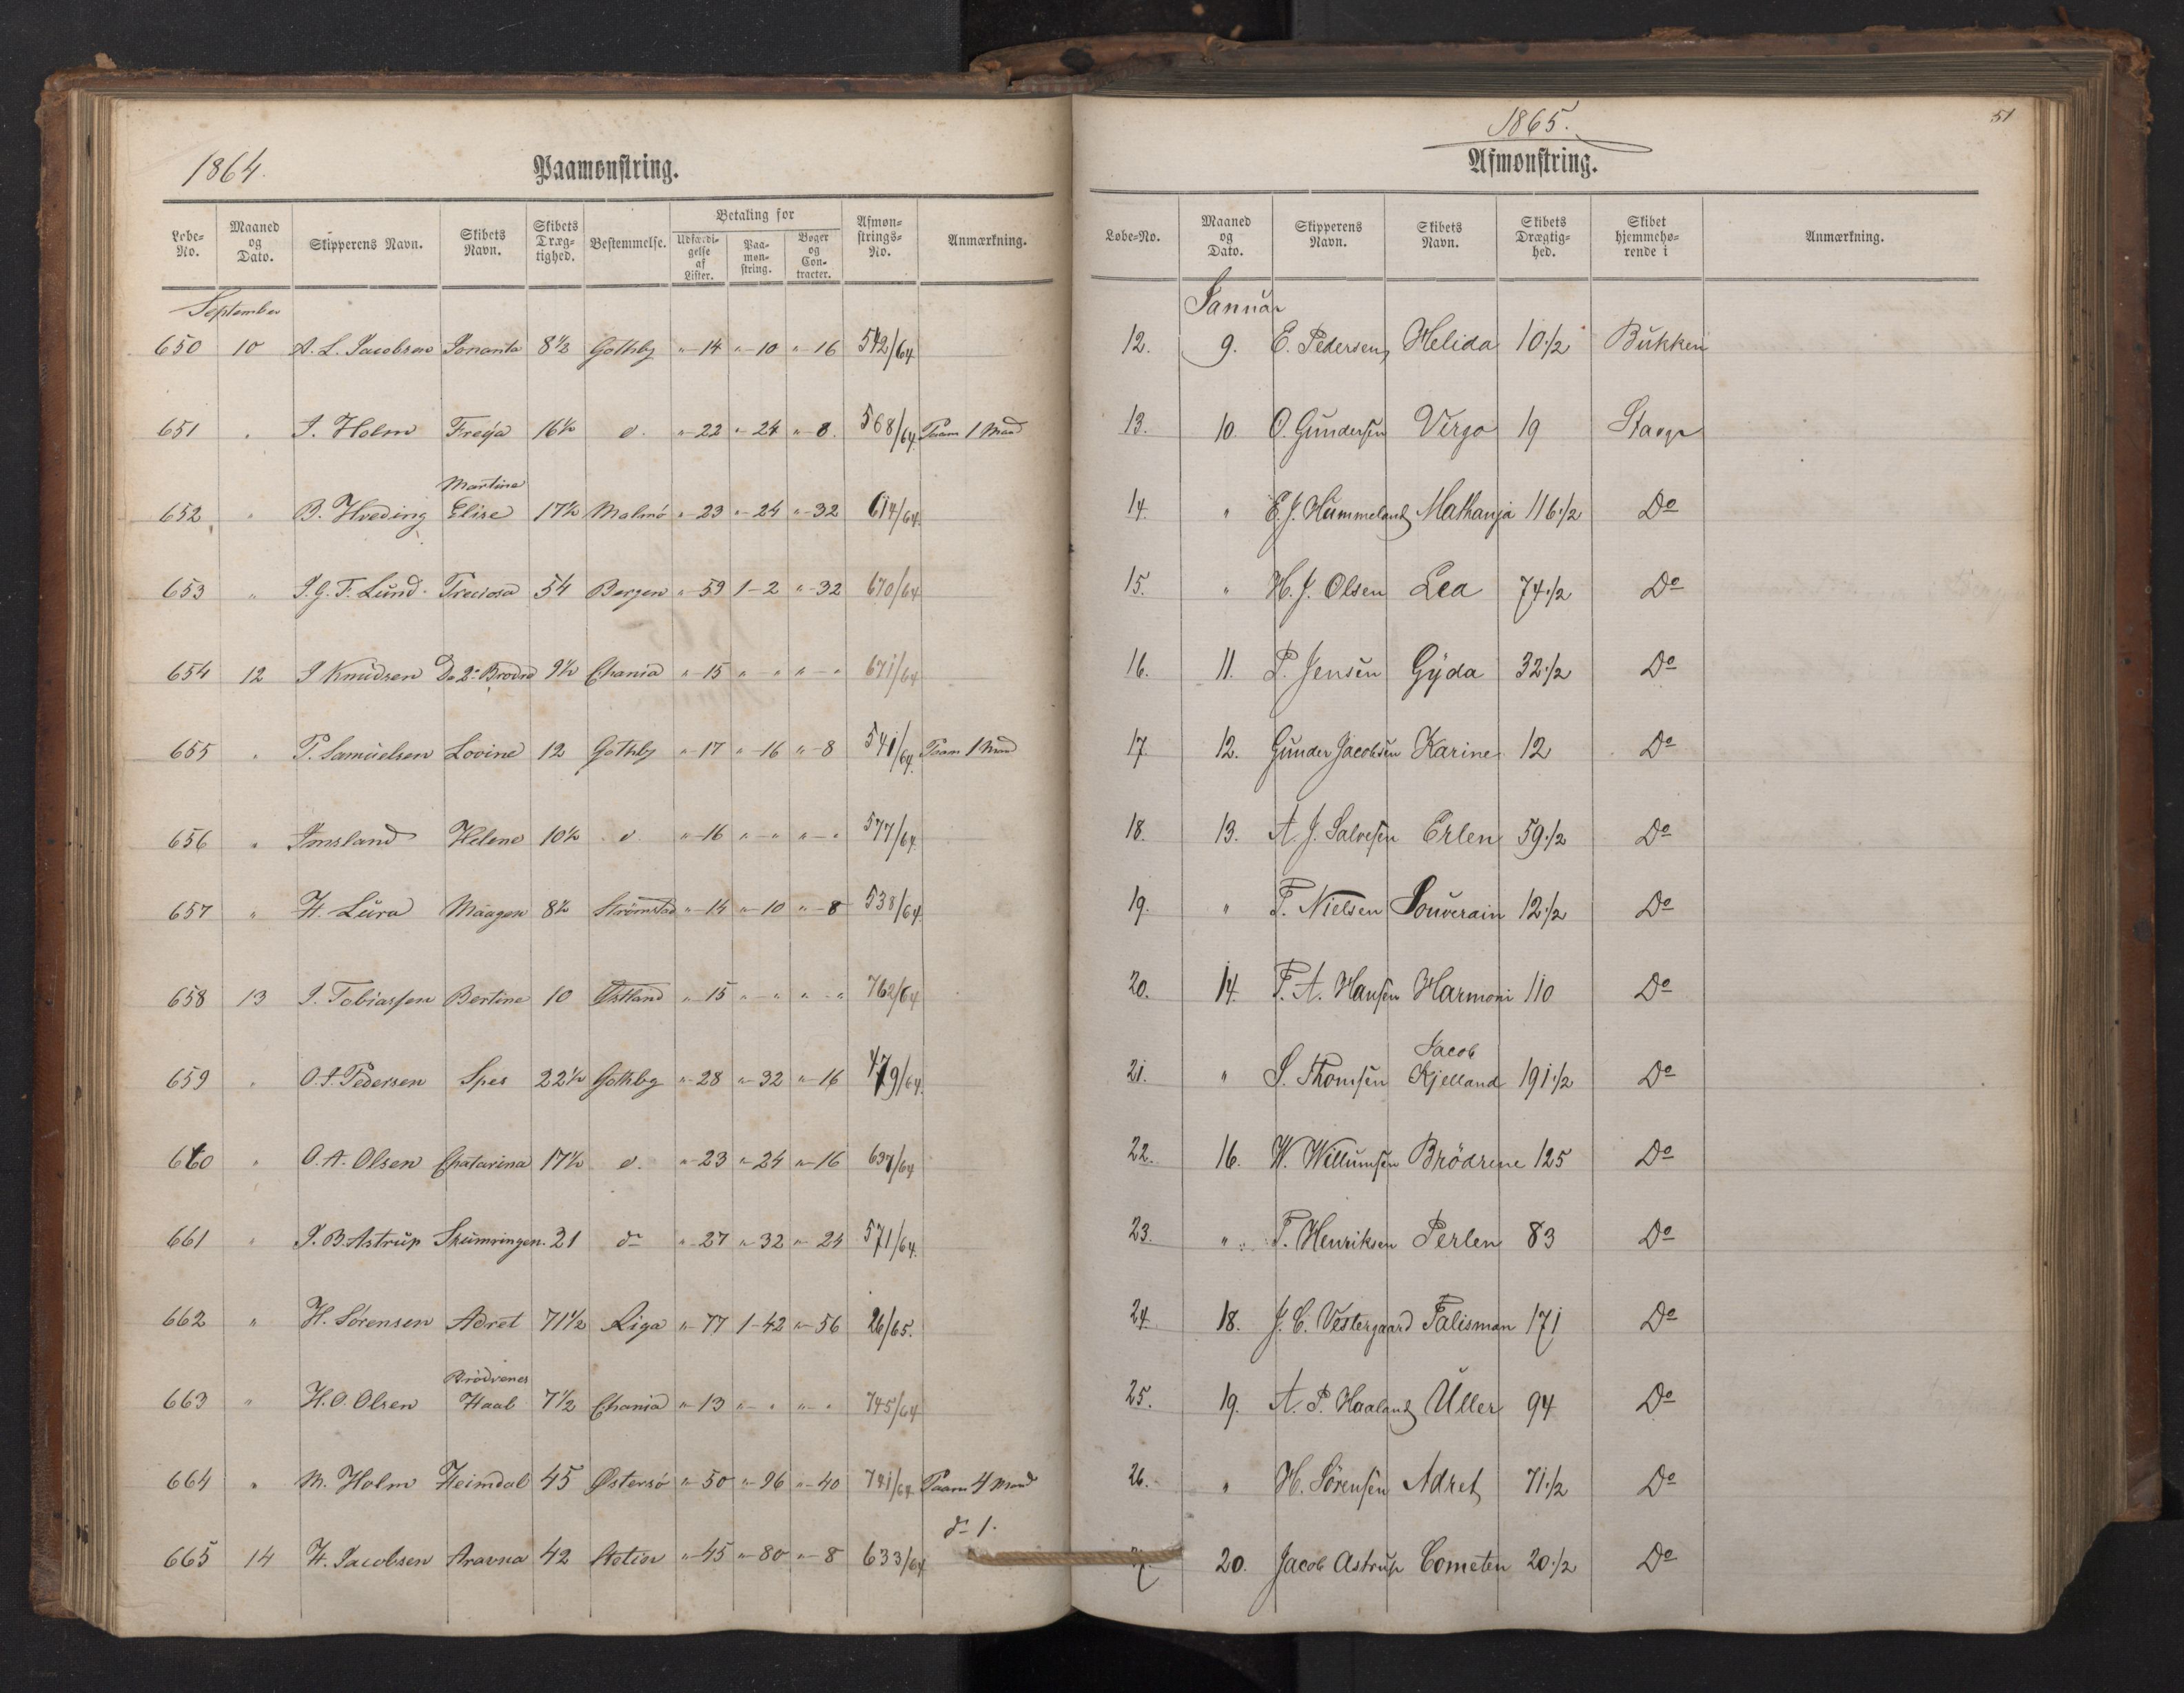 1864.
Paamønstring.
Løbe-No. Maaned og Dato. Skipperens Navn. Skibets Navn. Skibets Dræg-tighed. Bestemmelse. Betaling for Udfærdi-gelse af Lister. Paa-møn-string. Bøger og Con-tracter. Afmøn-strings-No. Anmærkning.
September
650 10 A. L. Jacobsen 8 1/2 Gothbg " - 14 " - 10 " - 16 542/64
651 " J. Holm Freya 16 1/2 d. " - 22 " - 24 " - 8. 568/64 Paam 1 Mand
652 " B. Hveding Martine Elise 17 1/2 Malmö " - 23 " - 24 " - 32 614/64
653 " J. G. T. Lund. Preciosa 54 Bergen " - 59 1 - 2 " - 32 670/64
654 12 J Knudsen De 2de Brødre 9 1/2 Chania " - 15 " - " " - " 671/64
655 " P. Samuelsen Lovine 12 Gothbg " - 17 " - 16 " - 8 541/64 Paam 1 Mand
656 " Imsland Helene 10 1/2 d " - 16 " - " " - " 577/64
657 " H. Lura Maagen 8 1/2 Strømstad " - 14 " - 10 " - 8 538/64
658 13 J. Tobiassen Bertine 10 Østland " - 15 " - " " - " 762/64
659 " O. J. Pedersen Spes 22 1/2 Gothbg " - 28 " - 32 " - 16 479/64
660 " O. A. Olsen Chatarina 17 1/2 d. " - 23 " - 24 " - 16 637/64
661 " J. B. Astrup Skumringen. 21 do " - 27 " - 32 " - 24 571/64
662 " H. Sørensen Adret 71 1/2 Riga " - 77 1 - 42 " - 56 26/65.
663 " H. O. Olsen Brødrenes Haab 7 1/2 Chania " - 13 " - " " - " 745/64
664 " M. Holm Heimdal 45 Østersø " - 50 " - 96 " - 40 741/64 Paam 4 Mand
665 14 H. Jacobsen Aravna 42 Stetin " - 45 " - 80 " - 8 633/64 do 1.
1865.
51
Afmønstring.
Løbe-No. Maaned og Dato. Skipperens Navn. Skibets Navn. Skibets Drægtig-hed. Skibet hjemmehø-rende i Anmærkning.
Januar
12. 9. E. Pedersen Helida 10 1/2 Bukken
13. 10. O. Gundersen Virgo 19 Stavgr
14. " E. J. Hummeland Mathanja 116 1/2 Do
15. " H. J. Olsen Lea 74 1/2 Do
16. 11. P. Jensen Gyda 32 1/2 Do
17. 12. Gunder Jacobsen Karine 12 Do
18. 13. A. J. Salvesen Erlen 59 1/2 Do
19. " T. Nielsen Souverain 12 1/2 Do
20. 14. F. A. Hansen Harmoni 110 Do
21. " S. Thomsen Jacob Kjelland 191 1/2 Do
22. 16. W. Willumsen Brödrene 125 Do
23. " T. Henriksen Perlen 83 Do
24. 18. J. C. Vestergaard Talisman 171 Do
25. 19. A. P. Haaland Uller 94 Do
26. " H. Sörensen Adret 71 1/2 Do
27. 20. Jacob Astrup Cometen 20 1/2 Do